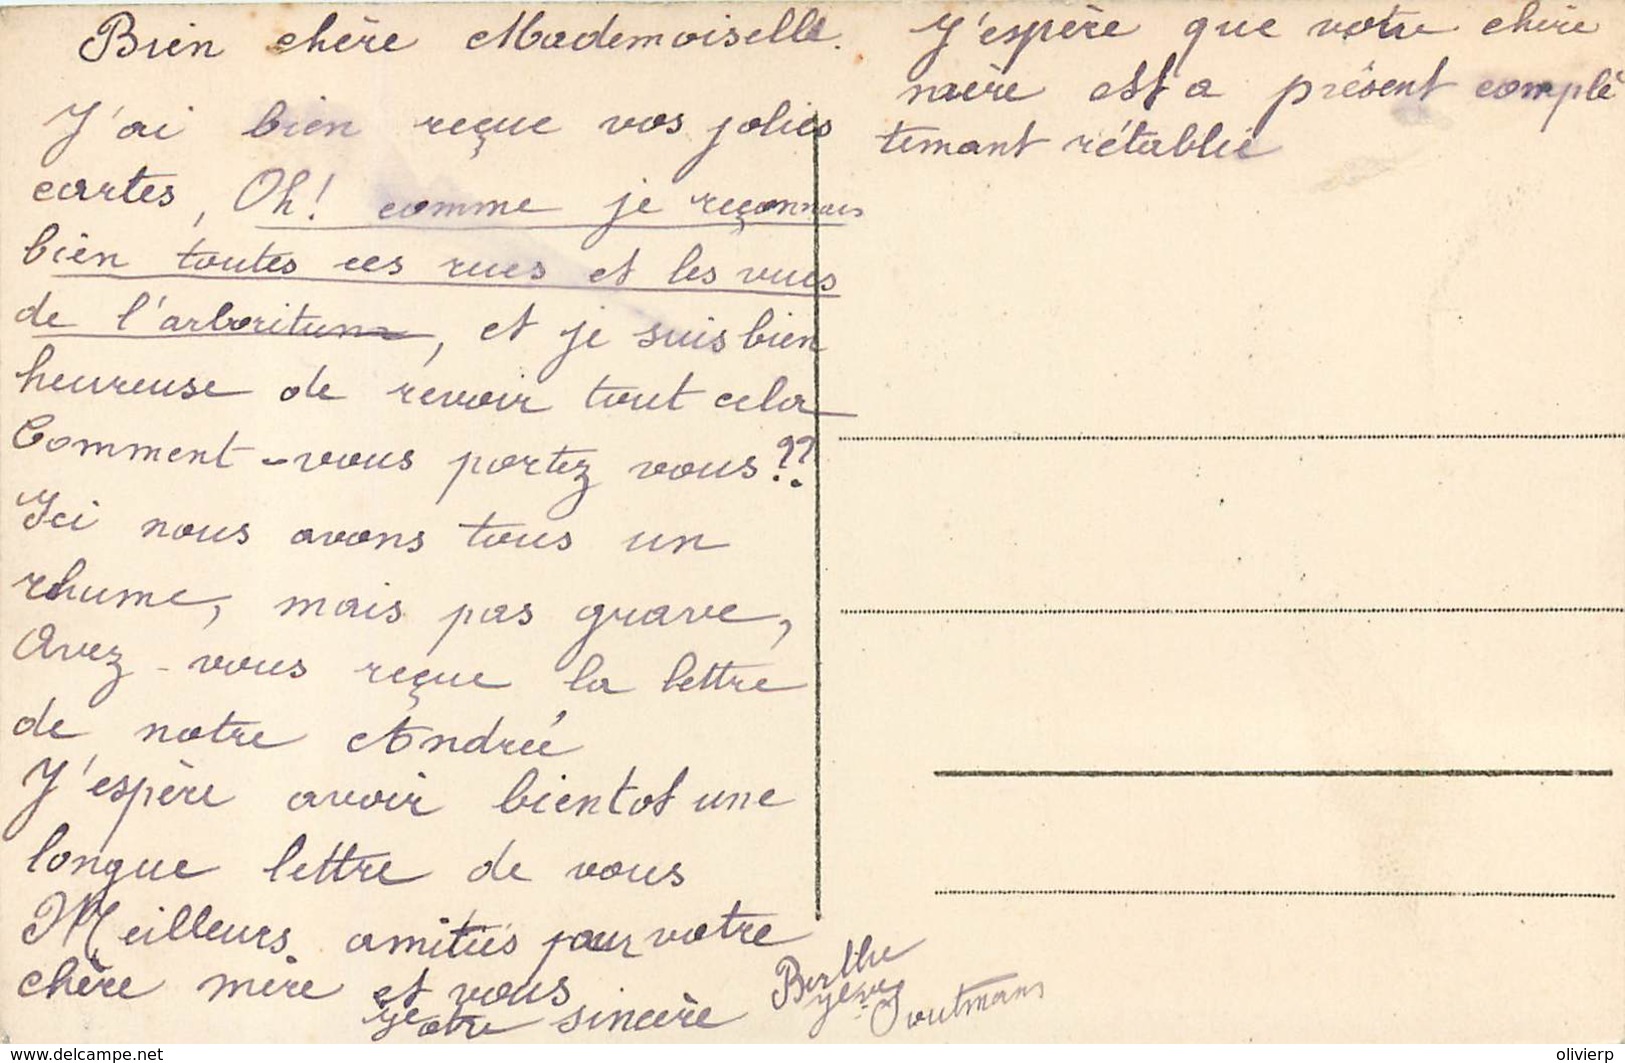 Bien chère Mademoiselle.
J'ai bien reçue vos jolies
cartes, Oh! comme je reçonnais
bien toutes ces rues et les vues
de l'arboritum, et je suis bien
heureuse de revoir tout cela
Comment-vous portez vous??
Ici nous avons tous un
rhume, mais pas grave,
Avez-vous reçue la lettre
de notre Andrée
J'espère avoir bientot une
longue lettre de vous
Meilleurs amitiés pour votre
chère mère et vous
Votre sincère
Berthe
Soutmans
J'espère que votre chère
mère est a présent complè
temant rétablie
olivierp